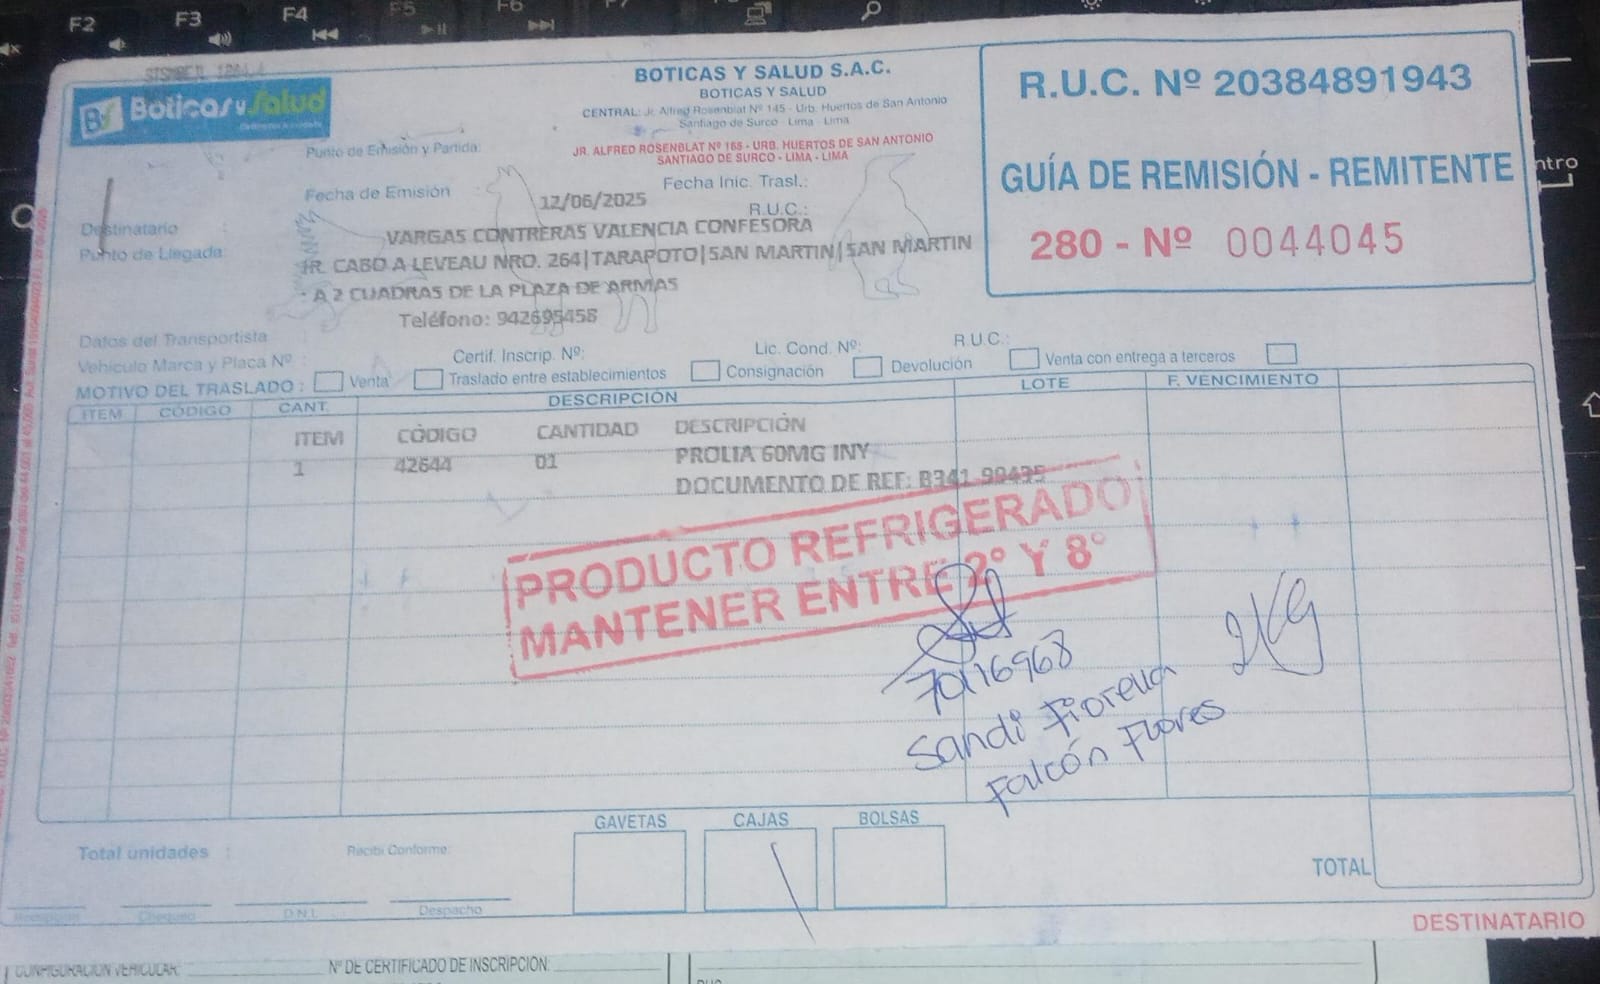 F2 F3 F4 F5 F6 F7
BOTICAS Y SALUD S.A.C.
BOTICAS Y SALUD
CENTRAL: Jr. Alfred Rosenblat Nº 145 - Urb. Huertos de San Antonio
Santiago de Surco - Lima - Lima
Boticas y Salud
JR. ALFRED ROSENBLAT Nº 165 - URB. HUERTOS DE SAN ANTONIO
SANTIAGO DE SURCO - LIMA - LIMA
R.U.C. Nº 20384891943
GUÍA DE REMISIÓN - REMITENTE
280 - Nº 0044045
Punto de Emisión y Partida:
Fecha de Emisión 12/06/2025 Fecha Inic. Trasl.:
Destinatario : VARGAS CONTRERAS VALENCIA CONFESORA R.U.C.:
Punto de Llegada: JR. CABO A LEVEAU NRO. 264|TARAPOTO|SAN MARTIN|SAN MARTIN
- A 2 CUADRAS DE LA PLAZA DE ARMAS
Teléfono: 942695458
Datos del Transportista R.U.C.:
Vehículo Marca y Placa Nº : Certif. Inscrip. Nº: Lic. Cond. Nº:
MOTIVO DEL TRASLADO : Venta Traslado entre establecimientos Consignación Devolución Venta con entrega a terceros
ITEM CÓDIGO CANT. DESCRIPCIÓN LOTE F. VENCIMIENTO
ITEM CÓDIGO CANTIDAD DESCRIPCIÓN
1 42644 01 PROLIA 60MG INY
DOCUMENTO DE REF: B341-99435
PRODUCTO REFRIGERADO
MANTENER ENTRE 2º Y 8º
70116968
Sandi Fiorella
Falcón Flores
GAVETAS CAJAS BOLSAS
Total unidades : Recibí Conforme:
TOTAL
Recepción Chequeo D.N.I. Despacho
DESTINATARIO
CONFIGURACIÓN VEHICULAR: Nº DE CERTIFICADO DE INSCRIPCIÓN: